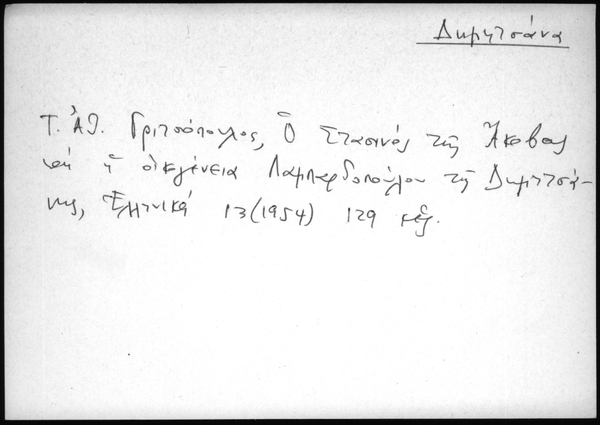 Δημητσάνα
Τ. Ἀθ. Γριτσόπουλος, Ὁ Στασινὸς τῆς Ἄκοβας
καὶ ἡ οἰκογένεια Λαμπαρδοπούλου τῆς Δημητσά-
νης, Ἑλληνικά 13 (1954) 129 ἑξ.